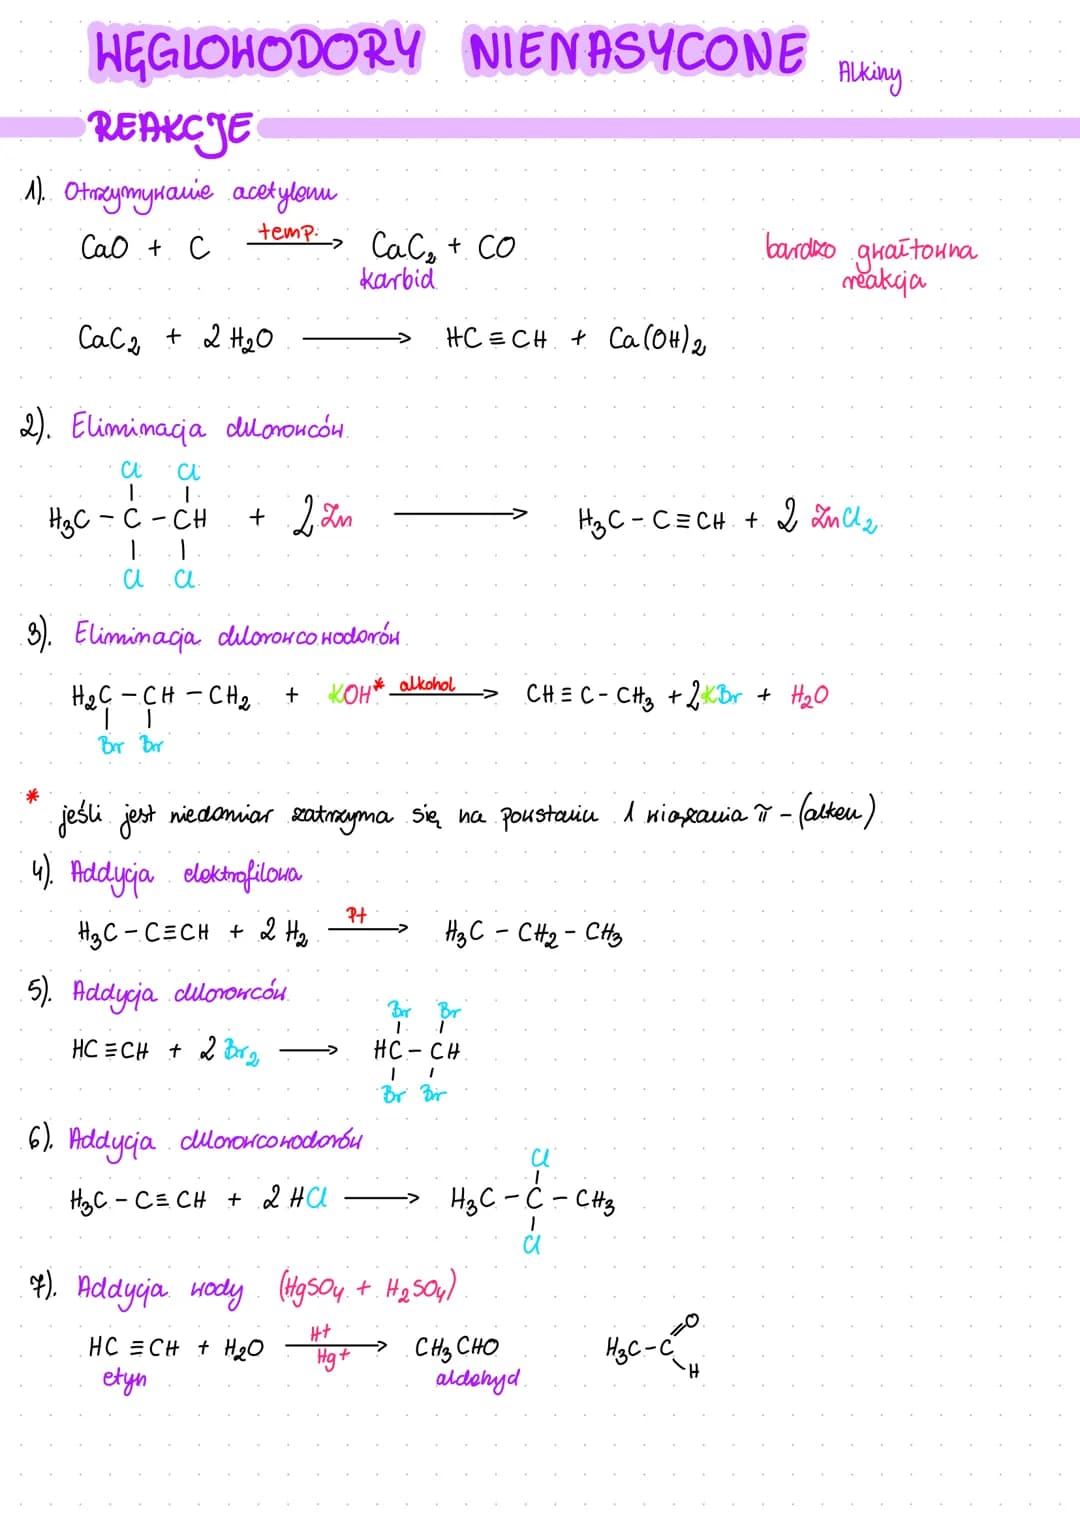 WĘGLOWODORY NIENASYCONE Alkiny
REAKCJE
1). Otrzymywanie acetylenu
CaO + C temp. → CaC₂ + CO
karbid
bardzo gwałtowna
reakcja
CaC₂ + 2 H₂O → HC ≡ CH + Ca(OH)₂
2). Eliminacja chlorowców
Cl Cl
H₃C - C - CH + 2 Zn → H₃C - C ≡ CH + 2 ZnCl₂
Cl Cl
3). Eliminacja chlorowcowodorów
H₂C - CH - CH₂ + KOH* alkohol → CH ≡ C - CH₃ + 2KBr + H₂O
Br Br
* jeśli jest niedomiar zatrzyma się na powstaniu 1 wiązania π - (alken)
4). Addycja elektrofilowa
H₃C - C ≡ CH + 2 H₂ Pt → H₃C - CH₂ - CH₃
5). Addycja chlorowców
Br Br
HC ≡ CH + 2 Br₂ → HC - CH
Br Br
6). Addycja chlorowcowodorów
Cl
H₃C - C ≡ CH + 2 HCl → H₃C - C - CH₃
Cl
7). Addycja wody (HgSO₄ + H₂SO₄)
HC ≡ CH + H₂O H+ Hg+ → CH₃CHO H₃C - C =O H
etyn aldehyd